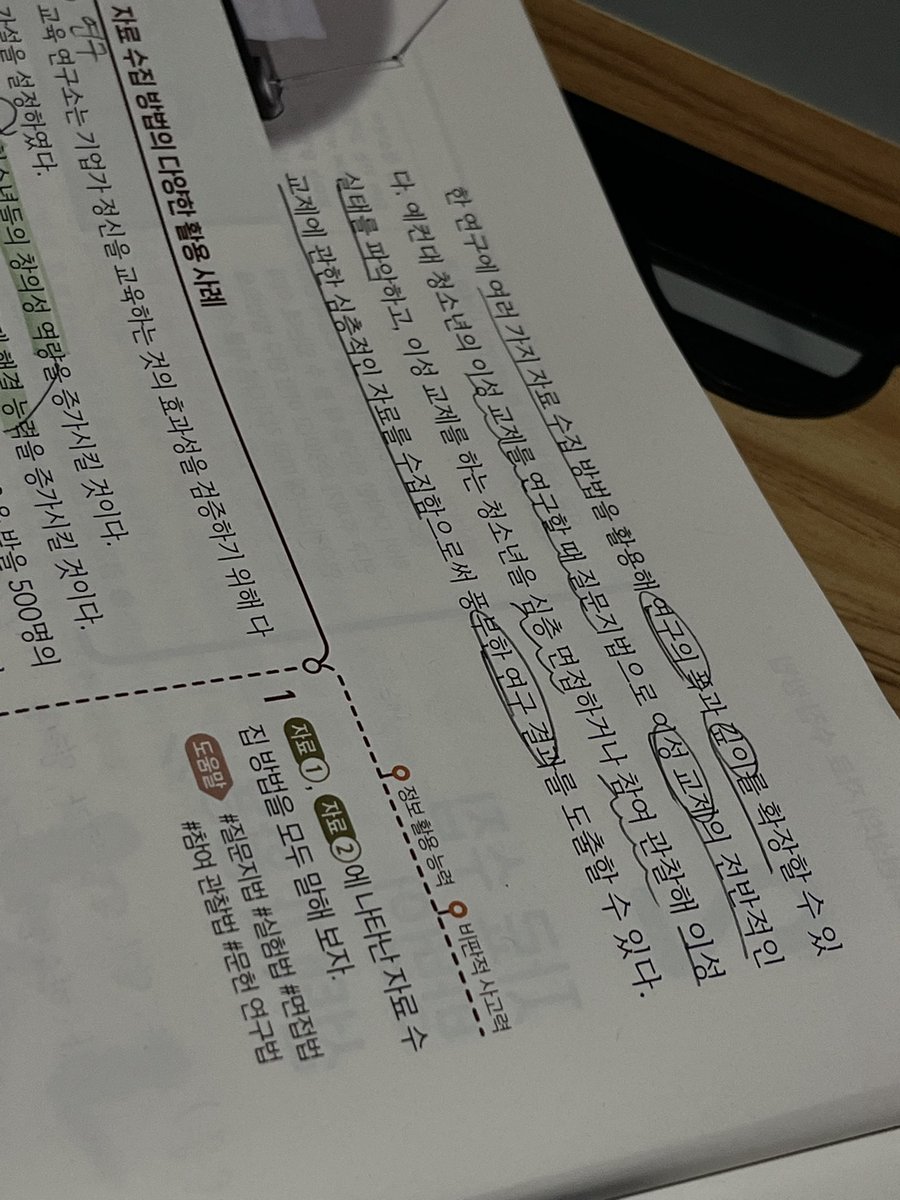 한 연구에 여러 가지 자료 수집 방법을 활용해 연구의 폭과 깊이를 확장할 수 있
다. 예컨대 청소년의 이성 교제를 연구할 때 질문지법으로 이성 교제의 전반적인
실태를 파악하고, 이성 교제를 하는 청소년을 심층 면접하거나 참여 관찰해 이성
교제에 관한 심층적인 자료를 수집함으로써 풍부한 연구 결과를 도출할 수 있다.
정보 활용 능력
비판적 사고력
자료 수집 방법의 다양한 활용 사례
연구
교육 연구소는 기업가 정신을 교육하는 것의 효과성을 검증하기 위해 다
가설을 설정하였다.
소년들의 창의성 역량을 증가시킬 것이다.
해결 능력을 증가시킬 것이다.
500명의
1
자료 1, 자료 2에 나타난 자료 수
집 방법을 모두 말해 보자.
도움말
#질문지법 #실험법 #면접법
#참여 관찰법 #문헌 연구법